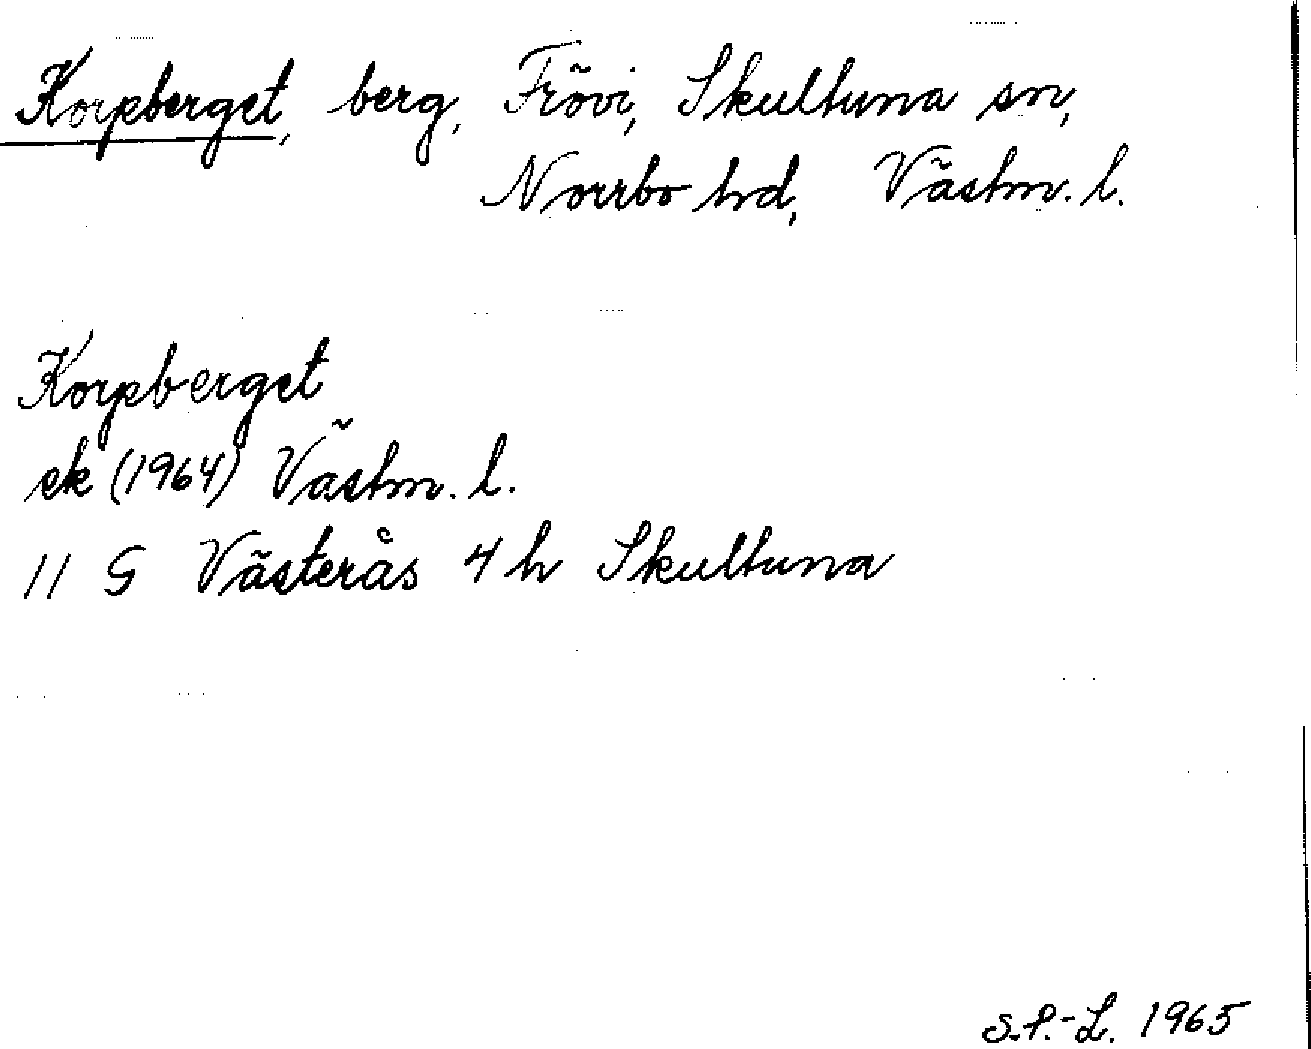 Korpberget, berg, Frövi, Skultuna sn,
Norrbo hd, Västm. l.
Korpberget
ek (1964) Västm. l.
11 G Västerås 4 h Skultuna
S.P.-L. 1965